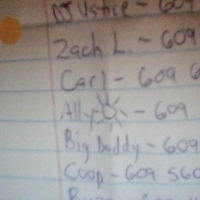 Justice - 609
Zach L. - 609
Carl - 609 6
Ally - 609
Big Daddy - 609
Coop - 609 560